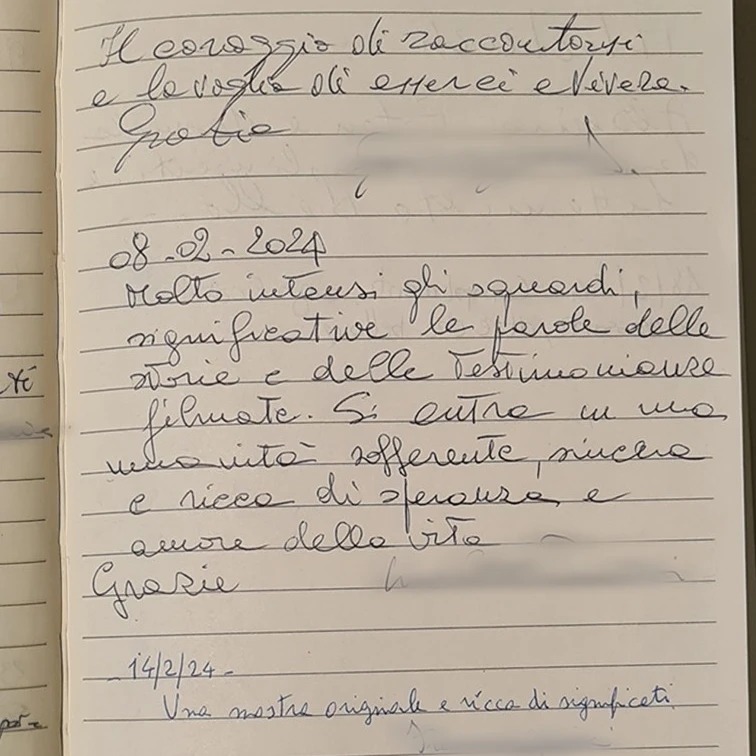 Il coraggio di raccontarsi
e la voglia di esserci e vivere.
Grazie
08-02-2024
Molto intensi gli sguardi,
significative le parole delle
storie e delle testimonianze
filmate. Si entra in una
umanità sofferente, sincera
e ricca di speranza e
amore della vita
Grazie
- 14/2/24 -
Una mostra originale e ricca di significati